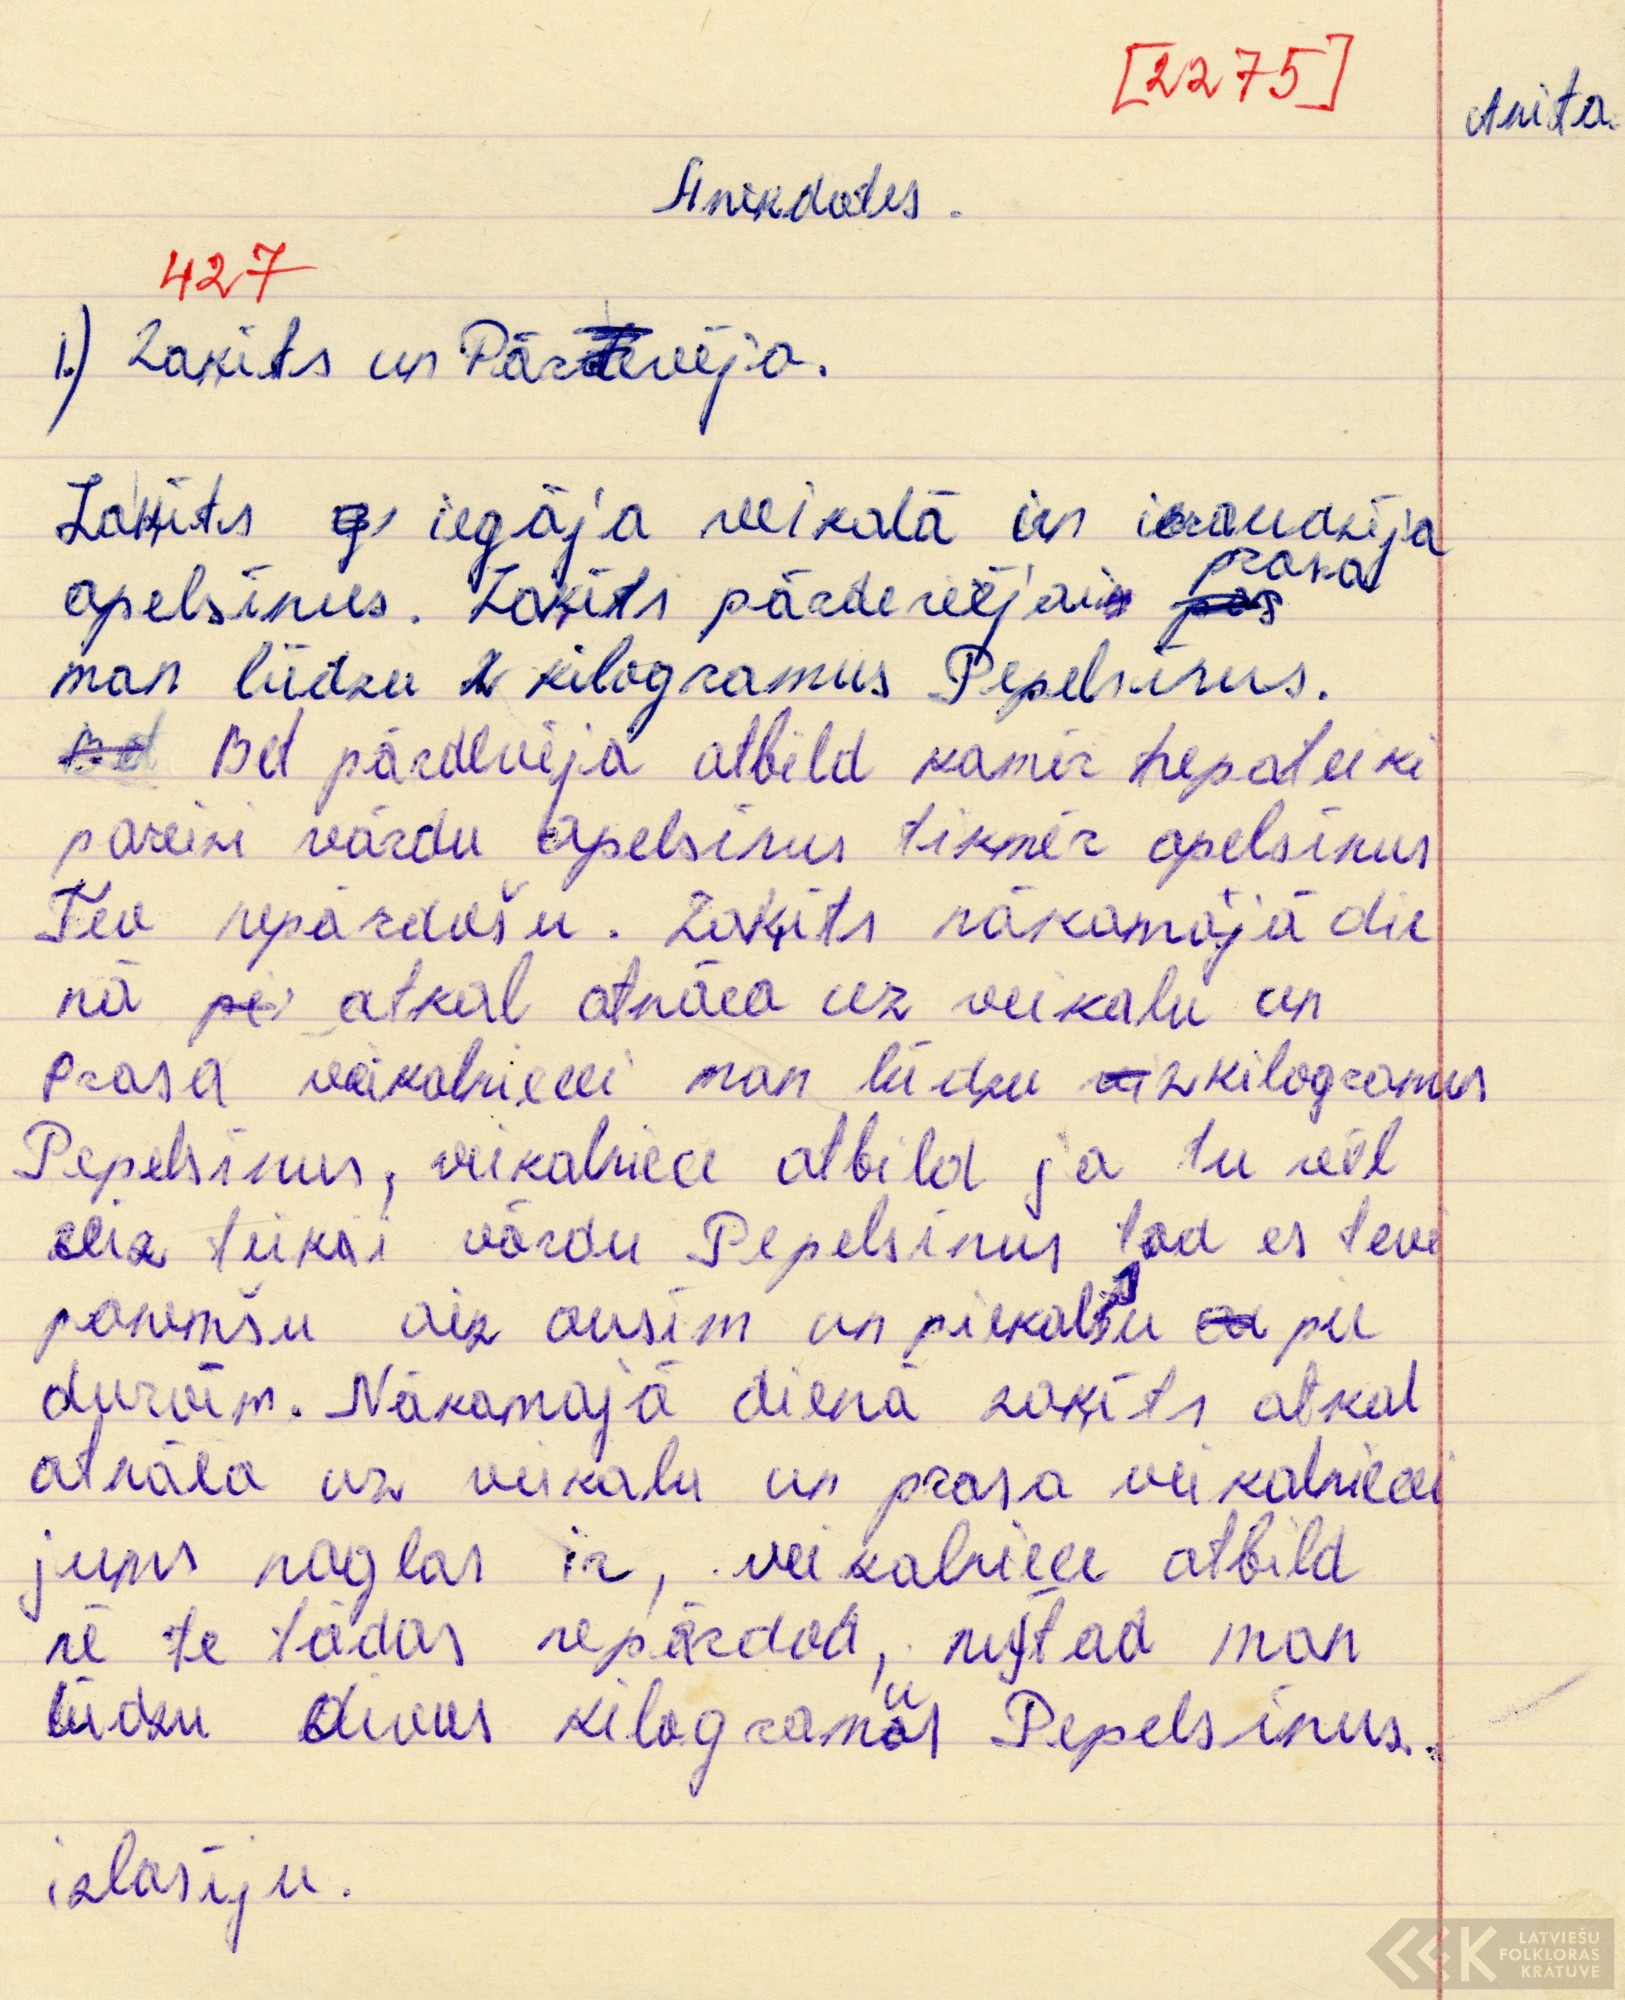 [2275]
Anita.
Anekdotes.
427
1.) Zaķits un Pārdevēja.
Zaķīts iegāja veikalā un ieraudzīja
apelsīnus. Zaķīts pārdevējai prasa
man lūdzu 2 kilogramus Pepelsīnus.
Bet Bet pārdevēja atbild kamēr nepateiki
pareizi vārdu apelsīnus tikmēr apelsīnus
Tev nepārdošu. Zaķīts nākamājā die
nā pe atkal atnāca uz veikalu un
prasa veikalniecei man lūdzu 2 kilogramus
Pepelsīnus, veikalniece atbild ja tu vēl
reiz teiksi vārdu Pepelsīnus tad es tevi
paņemšu aiz ausīm un piekalšu pie
durvīm. Nākamajā dienā zaķīts atkal
atnāca uz veikalu un prasa veikalniecei
jums naglas ir, veikalniece atbild
nē te tādas nepārdod, nu tad man
lūdzu divus kilogramus Pepelsīnus.
izlasīju.
LATVIEŠU
FOLKLORAS
KRĀTUVE